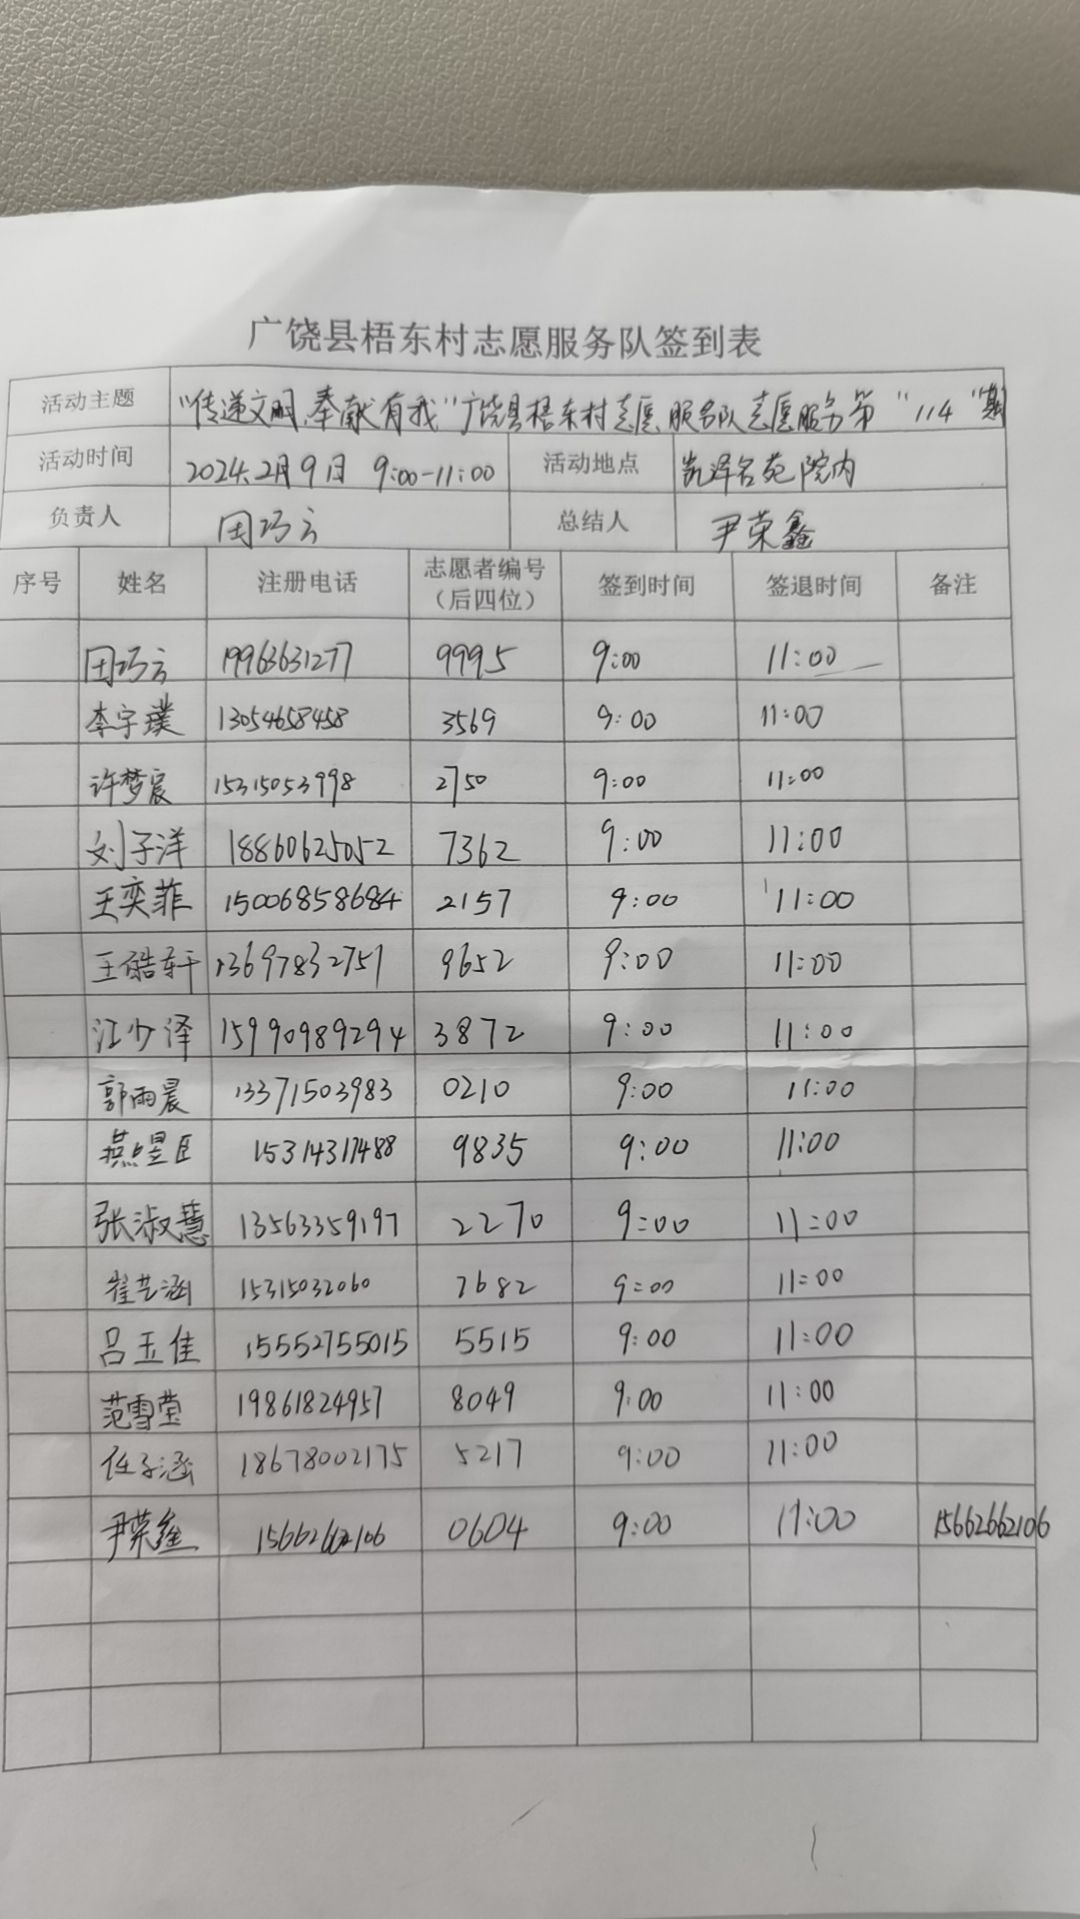 广饶县梧东村志愿服务队签到表
活动主题 "传递文明,奉献有我"广饶县梧东村志愿服务队志愿服务第"114"期
活动时间 2024.2月9日 9:00-11:00 活动地点 凯泽名苑院内
负责人 田巧云 总结人 尹荣鑫
序号 姓名 注册电话 志愿者编号(后四位) 签到时间 签退时间 备注
田巧云 19963631277 9995 9:00 11:00
李宇璞 13054658458 3569 9:00 11:00
许梦宸 15315053998 2750 9:00 11:00
刘子洋 18860625052 7362 9:00 11:00
王奕菲 15006858684 2157 9:00 11:00
王皓轩 13697832757 9652 9:00 11:00
江少泽 15990989294 3872 9:00 11:00
郭雨晨 13371503983 0210 9:00 11:00
燕昱臣 15314317488 9835 9:00 11:00
张淑慧 13563359197 2270 9:00 11:00
崔艺涵 15315032060 7682 9:00 11:00
吕玉佳 15552755015 5515 9:00 11:00
范雪莹 19861824957 8049 9:00 11:00
任子涵 18678002175 5217 9:00 11:00
尹荣鑫 15662662106 0604 9:00 11:00 15662662106